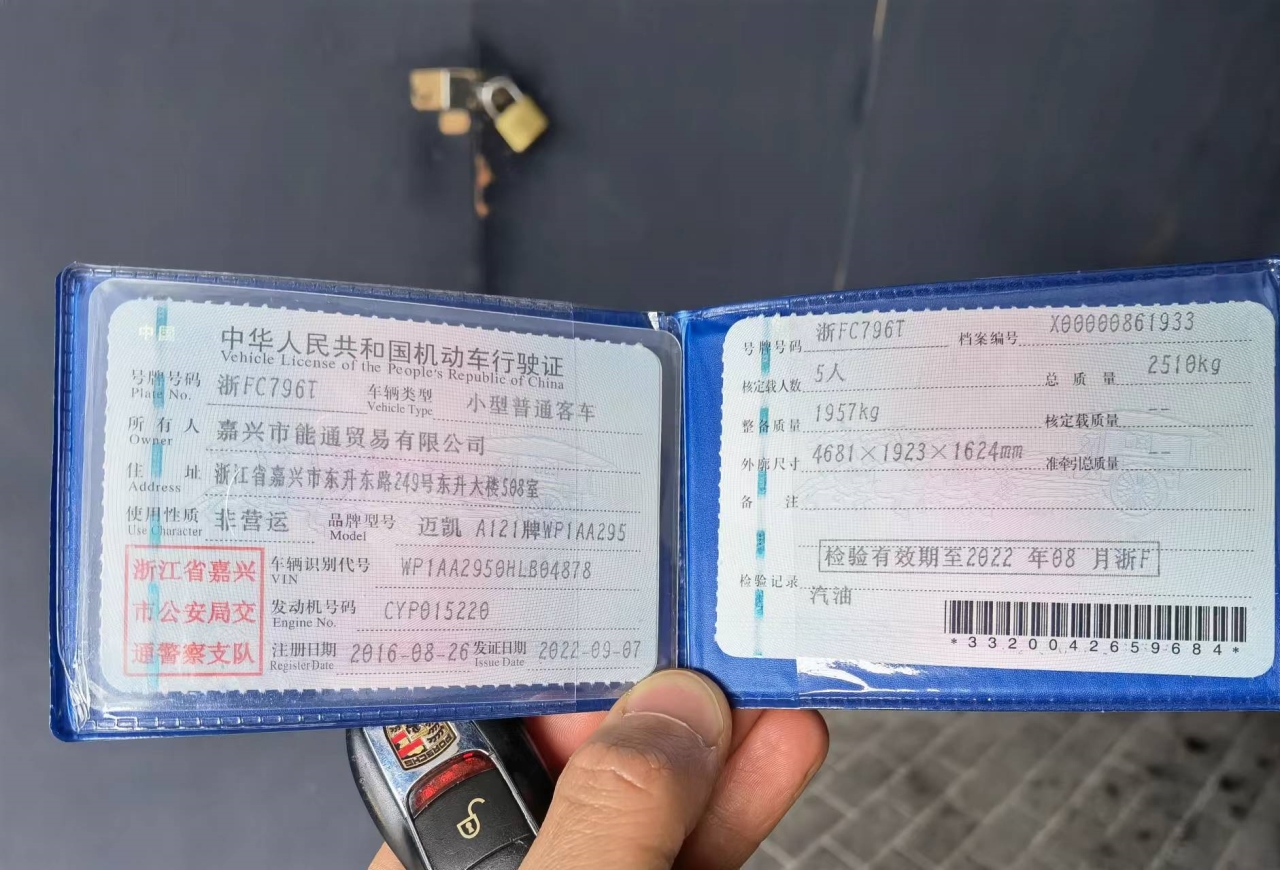 中国
中华人民共和国机动车行驶证
Vehicle License of the People's Republic of China
号牌号码 Plate No. 浙FC796T 车辆类型 Vehicle Type 小型普通客车
所有人 Owner 嘉兴市能通贸易有限公司
住址 Address 浙江省嘉兴市东升东路249号东升大楼508室
使用性质 Use Character 非营运 品牌型号 Model 迈凯 A121牌WP1AA295
浙江省嘉兴
市公安局交
通警察支队
车辆识别代号 VIN WP1AA2950HLB04878
发动机号码 Engine No. CYP015220
注册日期 Register Date 2016-08-26 发证日期 Issue Date 2022-09-07
号牌号码 浙FC796T 档案编号 X00000861933
核定载人数 5人 总质量 2510kg
整备质量 1957kg 核定载质量 --
外廓尺寸 4681×1923×1624mm 准牵引总质量 --
备注
检验有效期至2022 年08 月浙F
检验记录
汽油
*3320042659684*
PORSCHE